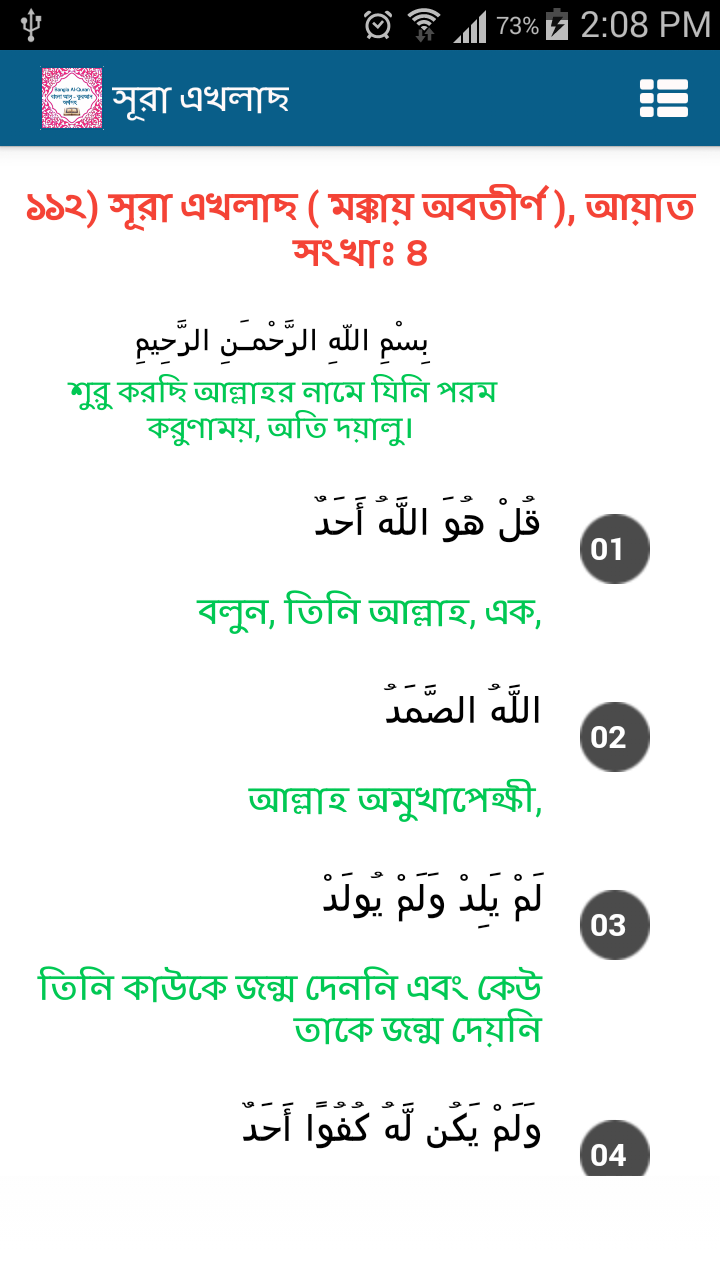 73% 2:08 PM
সূরা এখলাছ
১১২) সূরা এখলাছ ( মক্কায় অবতীর্ণ ), আয়াত
সংখাঃ ৪
بِسْمِ اللّهِ الرَّحْمـَنِ الرَّحِيمِ
শুরু করছি আল্লাহর নামে যিনি পরম
করুণাময়, অতি দয়ালু।
قُلْ هُوَ اللَّهُ أَحَدٌ
01
বলুন, তিনি আল্লাহ, এক,
اللَّهُ الصَّمَدُ
02
আল্লাহ অমুখাপেক্ষী,
لَمْ يَلِدْ وَلَمْ يُولَدْ
03
তিনি কাউকে জন্ম দেননি এবং কেউ
তাকে জন্ম দেয়নি
وَلَمْ يَكُن لَّهُ كُفُوًا أَحَدٌ
04